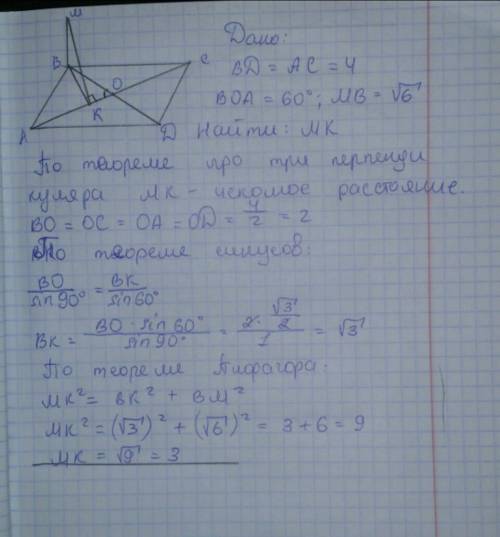 M
B
C
O
K
A
D
Дано:
BD = AC = 4
BOA = 60°; MB = √6
Найти: MK
По теореме про три перпенди
куляра MK - искомое расстояние.
BO = OC = OA = OD = 4/2 = 2
По теореме синусов:
BO/sin90° = BK/sin60°
BK = BO · sin60°/sin90° = 2 · √3/2 / 1 = √3
По теореме Пифагора:
MK² = BK² + BM²
MK² = (√3)² + (√6)² = 3 + 6 = 9
MK = √9 = 3